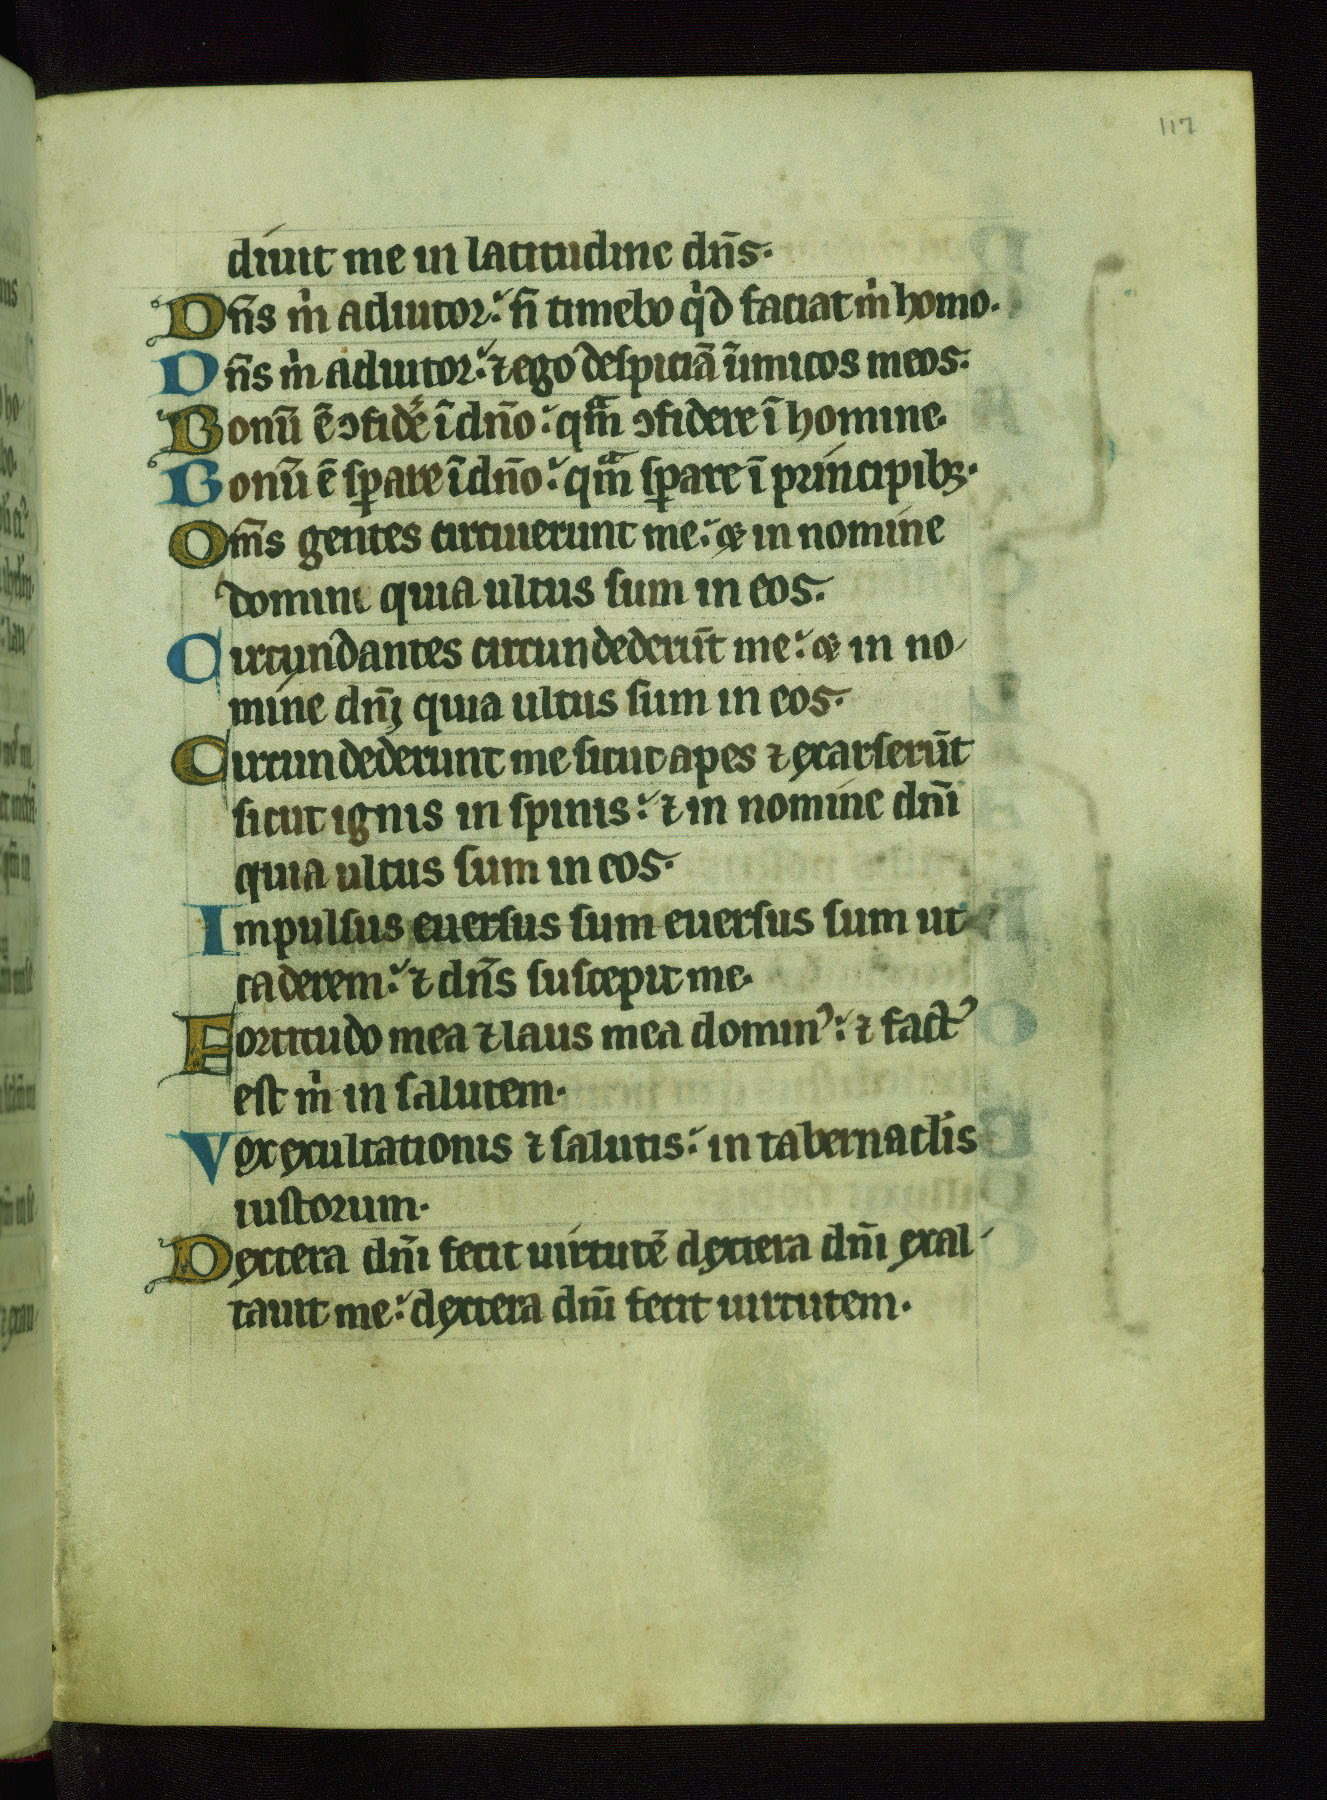 117
diuit me in latitudine dn̄s.
Dn̄s m̉ adiutor: n̄ timebo qͥd faciat m̉ homo.
Dn̄s m̉ adiutor: ⁊ ego despiciā īimicos meos.
Bonū ē ɔfidē ī dn̄o: qᵃm̄ ɔfidere ī homine.
Bonū ē sꝑare ī dn̄o: qᵃm̄ sꝑare ī principibꝫ.
Om̄s gentes circuierunt me: ⁊ in nomine
domini quia ultus sum in eos.
Circundantes circundederūt me: ⁊ in no
mine dn̄i quia ultus sum in eos.
Circundederunt me sicut apes ⁊ exarserūt
sicut ignis in spinis: ⁊ in nomine dn̄i
quia ultus sum in eos.
Impulsus euersus sum euersus sum ut
caderem: ⁊ dn̄s suscepit me.
Fortitudo mea ⁊ laus mea dominꝰ: ⁊ factꝰ
est m̉ in salutem.
Vox exultationis ⁊ salutis: in tabernacl̓is
iustorum.
Dextera dn̄i fecit uirtutē dextera dn̄i exal
tauit me: dextera dn̄i fecit uirtutem.